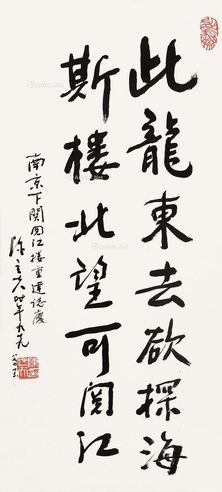 此龍東去欲探海
斯樓北望可閱江
南京下關閱江樓重建誌慶
陈立夫 时年九九